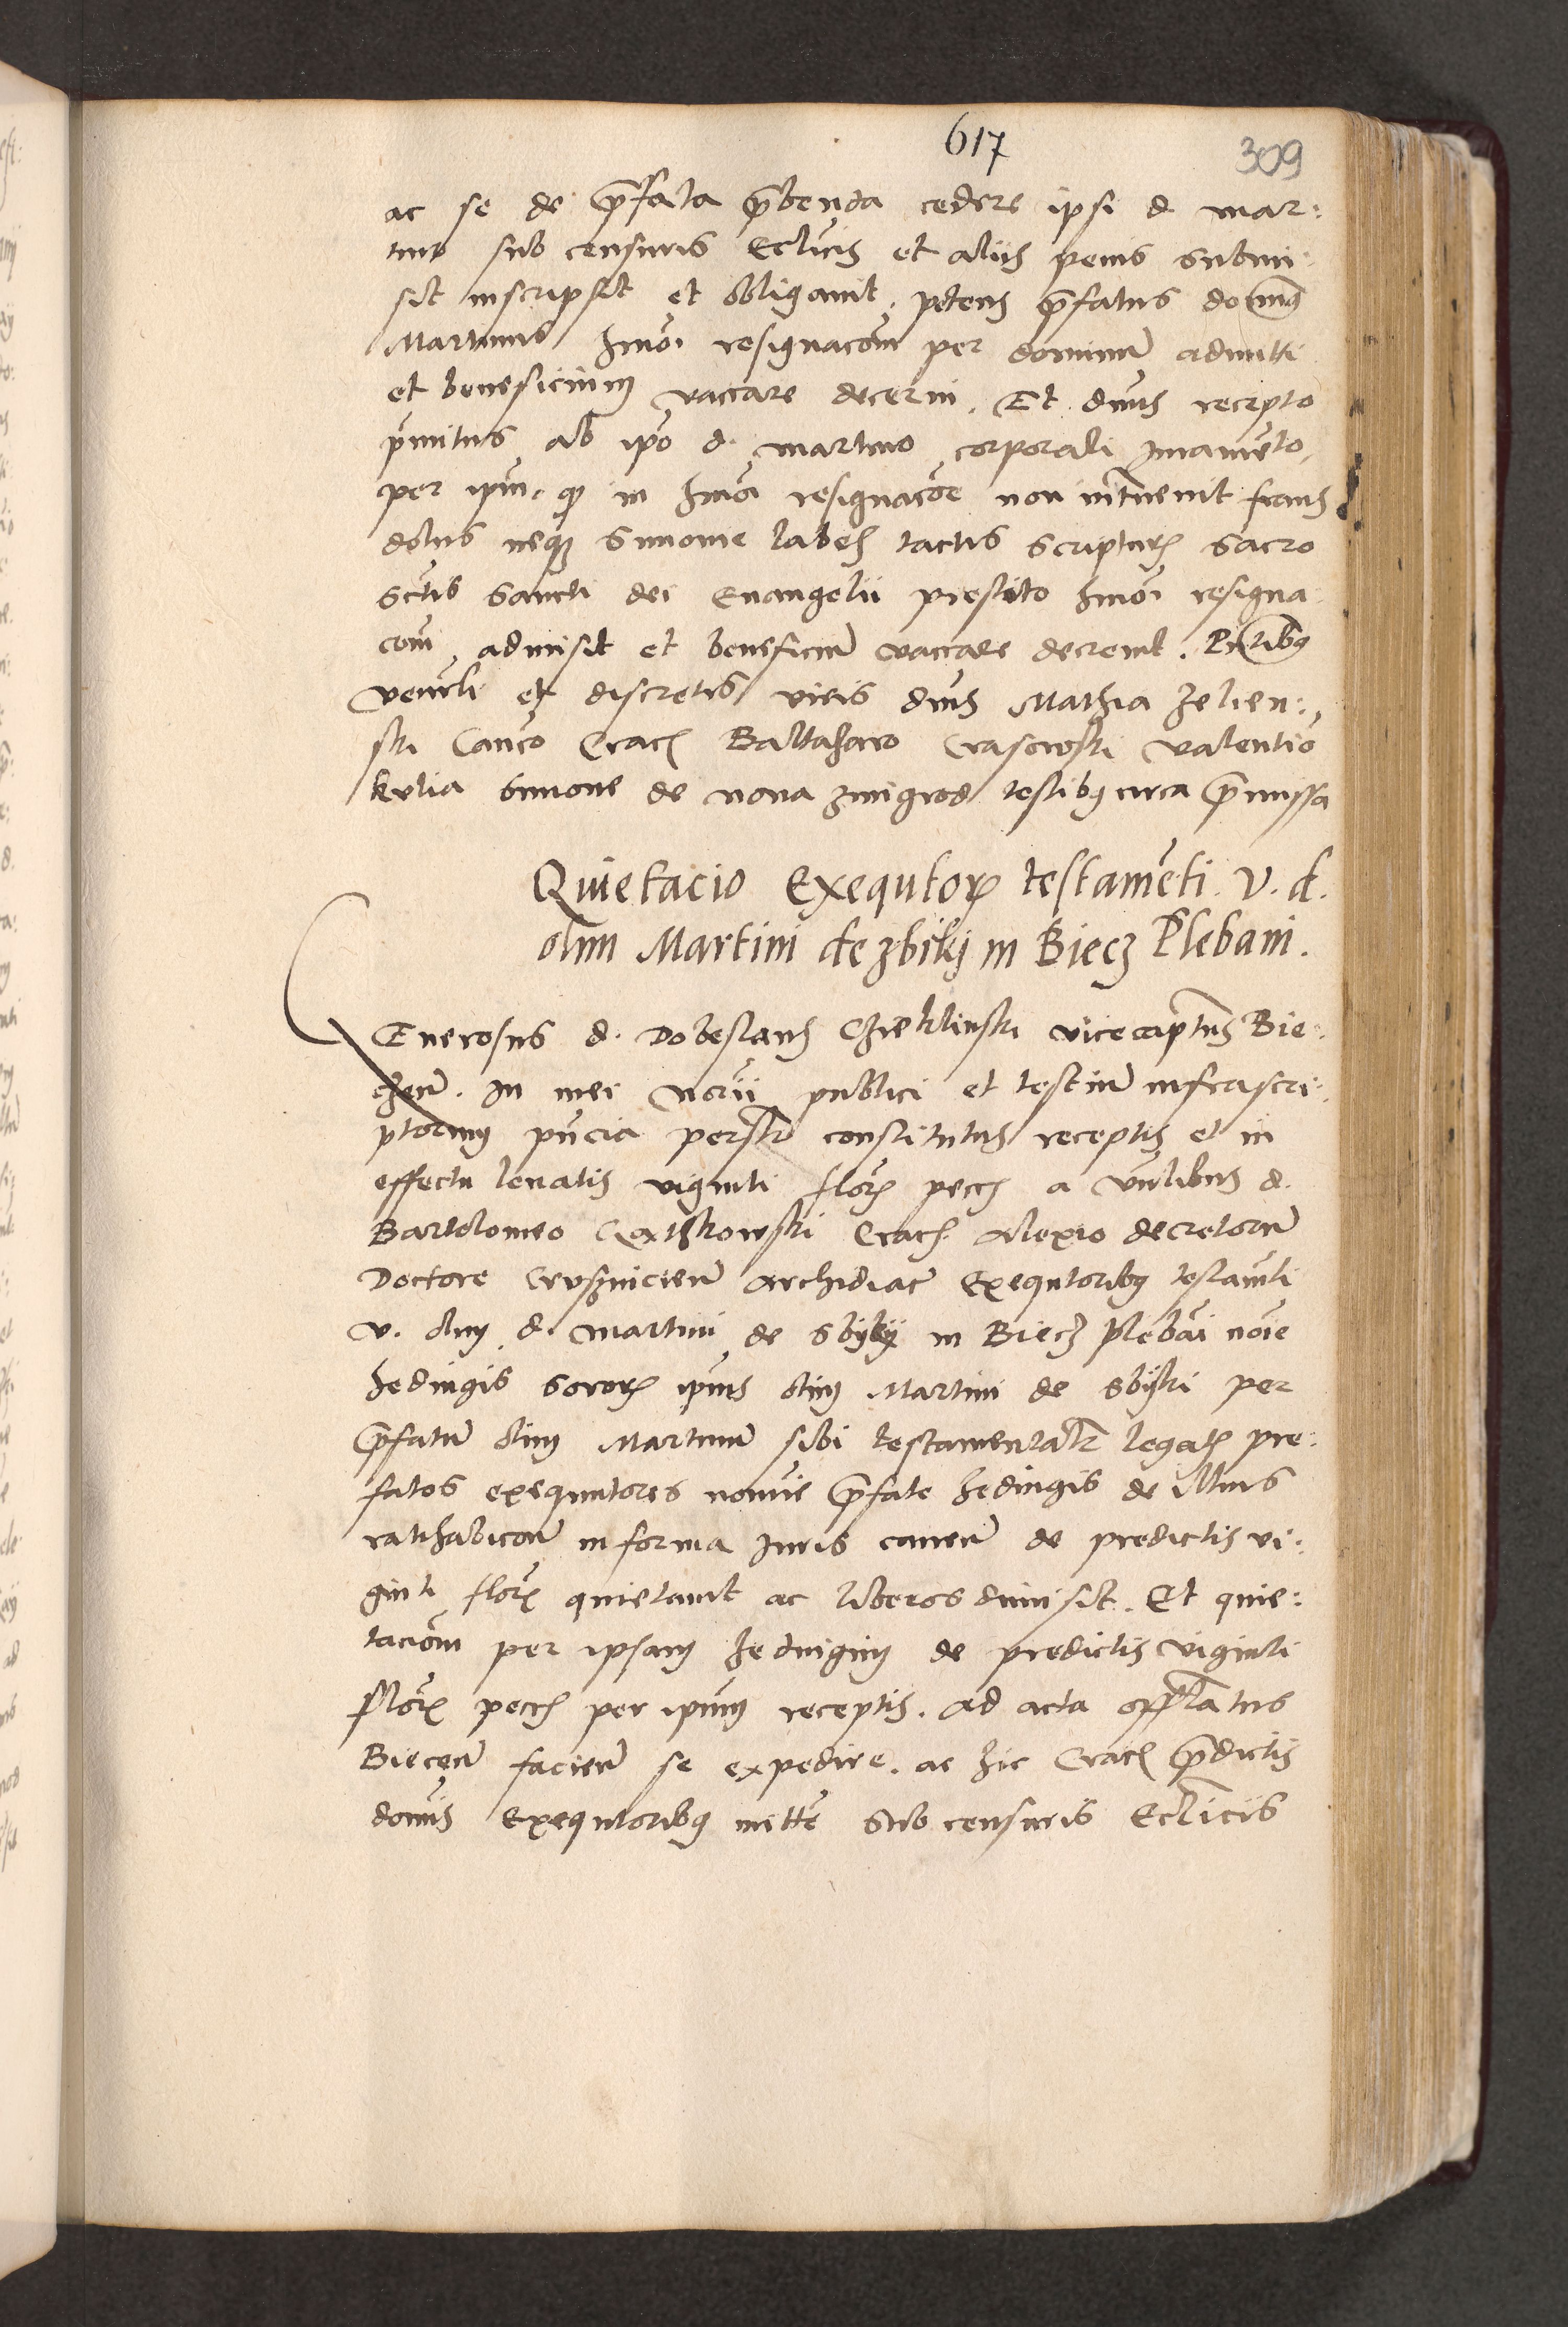 617
309
ac se de p̄fata p̄benda cedere ipsi d. Mar:
tino sub censuris Ecl̄icis et aliis penis submi:
sit inscripsit et obligavit. petens p̄fatus dominus
Martinus hmōi resignacōm per dominum admitti
et beneficium vaccare decerni. Et dnus recepto
p̄mitus ab ipō d. Martino corporali Juramēto,
per ipm̄. q in hmōi resignacōe non intervenit fraus
dolus neq simonie labes tactis scripturis sacro
sctīs sancti dei Evangelii prestito hmōi resigna
cōm admisit et beneficiū vaccare decrevit. Pn̄tibus
ven̄cli et discretis viris dnis Mathia Jelien:
ski Canco Crac Baltasaro Crasowski Valentio
kulia Simone de nova zmigrod testibus circa p̄missa
Quietacio Exequtor testamēti. V. d.
olim Martini de zbiki in Biecz Plebani.
Enerosus d. Dobeslaus Czieklinski vicecaptn̄s Bie:
czen̄. In mei norii publici et testium infrascri:
ptorum pn̄cia personlr constitutus receptis et in
effectu levatis viginti flor pecc a vn̄libus d.
Bartolomeo Crac Alexio decretorū
Doctore Crusviciem̄ Archidiac Exequtoribus testam̄ti
v. olim d. Martini de Sbyky in Biecz plebāi noīe
hedvigis sororis ipius olim Martini de sbyki per
p̄fatū olim Martinum sibi testamentalr legatis pre:
fatos exequutores nomīe p̄fate hedvigis de illius
ratihabicoē in forma Iuris cavens de predictis vi:
ginti flor quietavit ac liberos dimisit. Et quie:
tacōm per ipsam hedvigim de predictis viginti
flor pecc per ipum receptis. ad acta offīlatus
Biecen̄ faciem̄ se expedire. ac hic Crac p̄dictis
domīs Exequtoribus mitte sub censuris Ecl̄icis